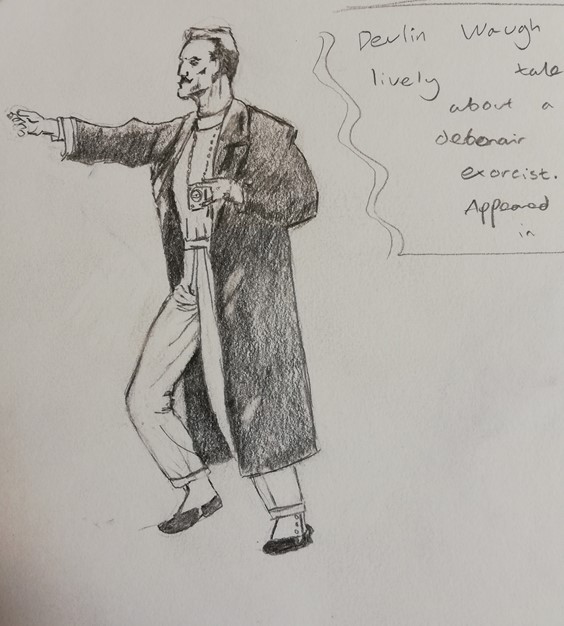 Devlin Waugh
lively tale
about a
debonair
exorcist.
Appeared
in